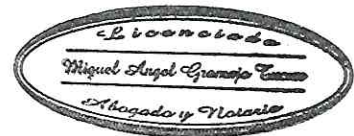 Licenciado
Miguel Angel Granajo
Abogado y Notario